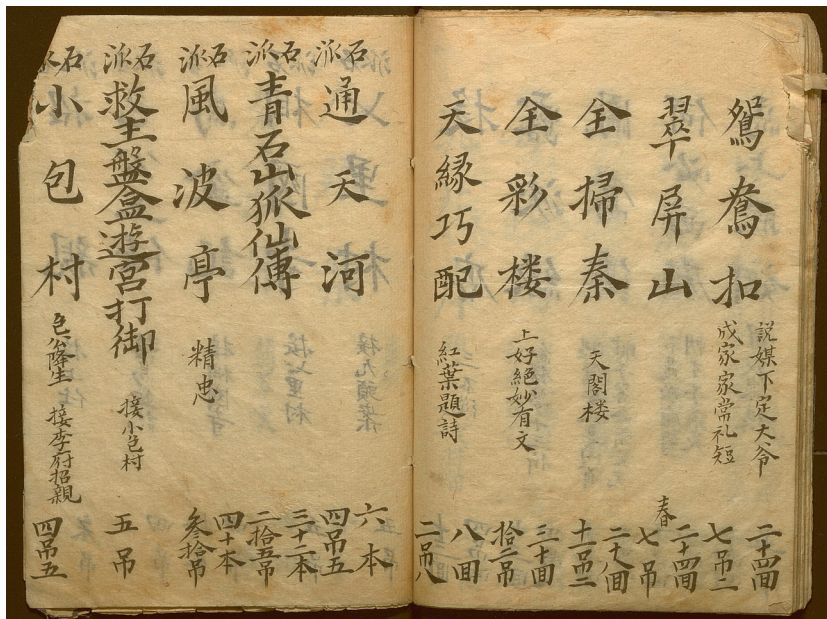 鴛鴦扣
說媒下定大爷
成家家常礼短
二十四回
七吊二
翠屏山
二十四回
七吊
春
全掃秦
天閣楼
二十八回
十一吊二
全彩楼
上好絕妙有文
三十回
拾二吊
天縁巧配
紅葉題詩
八回
二吊八
石派
通天河
六本
四吊五
石派
青石山狐仙傳
三十二本
二拾五吊
石派
風波亭
精忠
四十本
叁拾吊
石派
救主盤盒遊宮打御
接小包村
五吊
石派
小包村
包公降生
接李府招親
四吊五